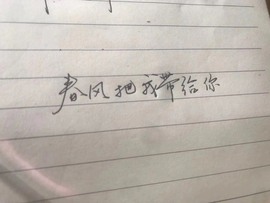 春风把我带给你